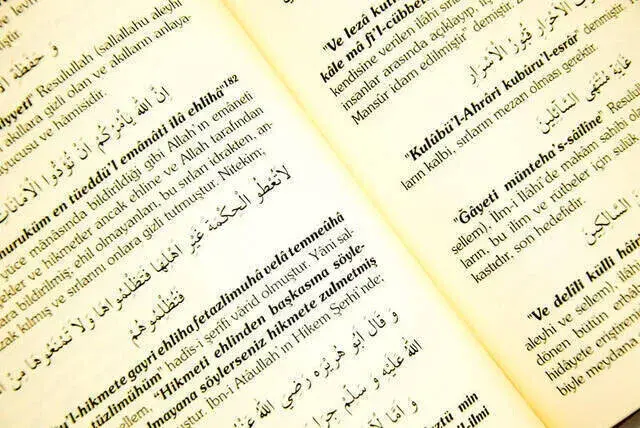 ve
وَ حَفَظَةِ
lliyyeti" Resulullah (sallallahu aleyhi
akıllara gizli olan ve akılların anlaya-
yucusu ve hâmisidir.
إِنَّ اللّٰهَ يَأْمُرُكُمْ اَنْ تُؤَدُّوا الْاَمَانَاتِ
murukum en tüeddü'l emânâti ilâ ehlihâ"182
yüce mânâsında bildirildiği gibi Allah'ın emâneti
ve hikmetler ancak ehline ve Allah tarafından
lara bildirilmiş; ehil olmayanları, bu sırları idrakten, an-
zak kılmış ve sırlarını onlara gizli tutmuştur. Nitekim;
لَا تُعْطُو الْحِكْمَةَ غَيْرَ اَهْلِهَا فَتَظْلِمُوهَا وَلَا تَمْنَعُوهَا مِنْ
فَتَظْلِمُوهُمْ
u'l-hikmete gayri ehliha fetazlimuhâ velâ temneûhâ
tüzlimûhüm" hadis-i şerifi vârid olmuştur. Yâni sal-
sellem, "Hikmeti ehlinden başkasına söyle-
mayana söylerseniz hikmete zulmetmiş
muştur. İbn-i Atâullah'ın Hikem Şerhi'nde;
وَ قَالَ اَبُو هُرَيْرَه رَضِيَ اللّٰهُ
اللّٰهِ عَلَيْهِ وَ سَلَّمَ
وَ اَمَّا
"Ve lezâ kulû
kâle mâ fi'l-cübbe
kendisine verilen ilâhi sın
insanlar arasında açıklayıp, il
Mansûr idam edilmiştir" demiştir.
الْاَحْرَارِ قُبُورُ الْاَسْرَارِ
"Kulûbü'l-Ahrâri kubûrü'l-esrâr" denmiştir.
ların kalbi, sırların mezarı olması gerektir.
غَايَةِ مُنْتَهَى السَّائِلِينَ
"Gâyeti münteha's-sâilîne"
sellem), İlm-i İlâhi'de makam sahibi ol
ların, bu ilim ve rütbeler için sülûk
kastıdır, son hedefidir.
السَّالِكِينَ
"Ve delîli külli hâiri
aleyhi ve sellem),
dönen bütün erba
hidâyete eriştiren
biyle meydana